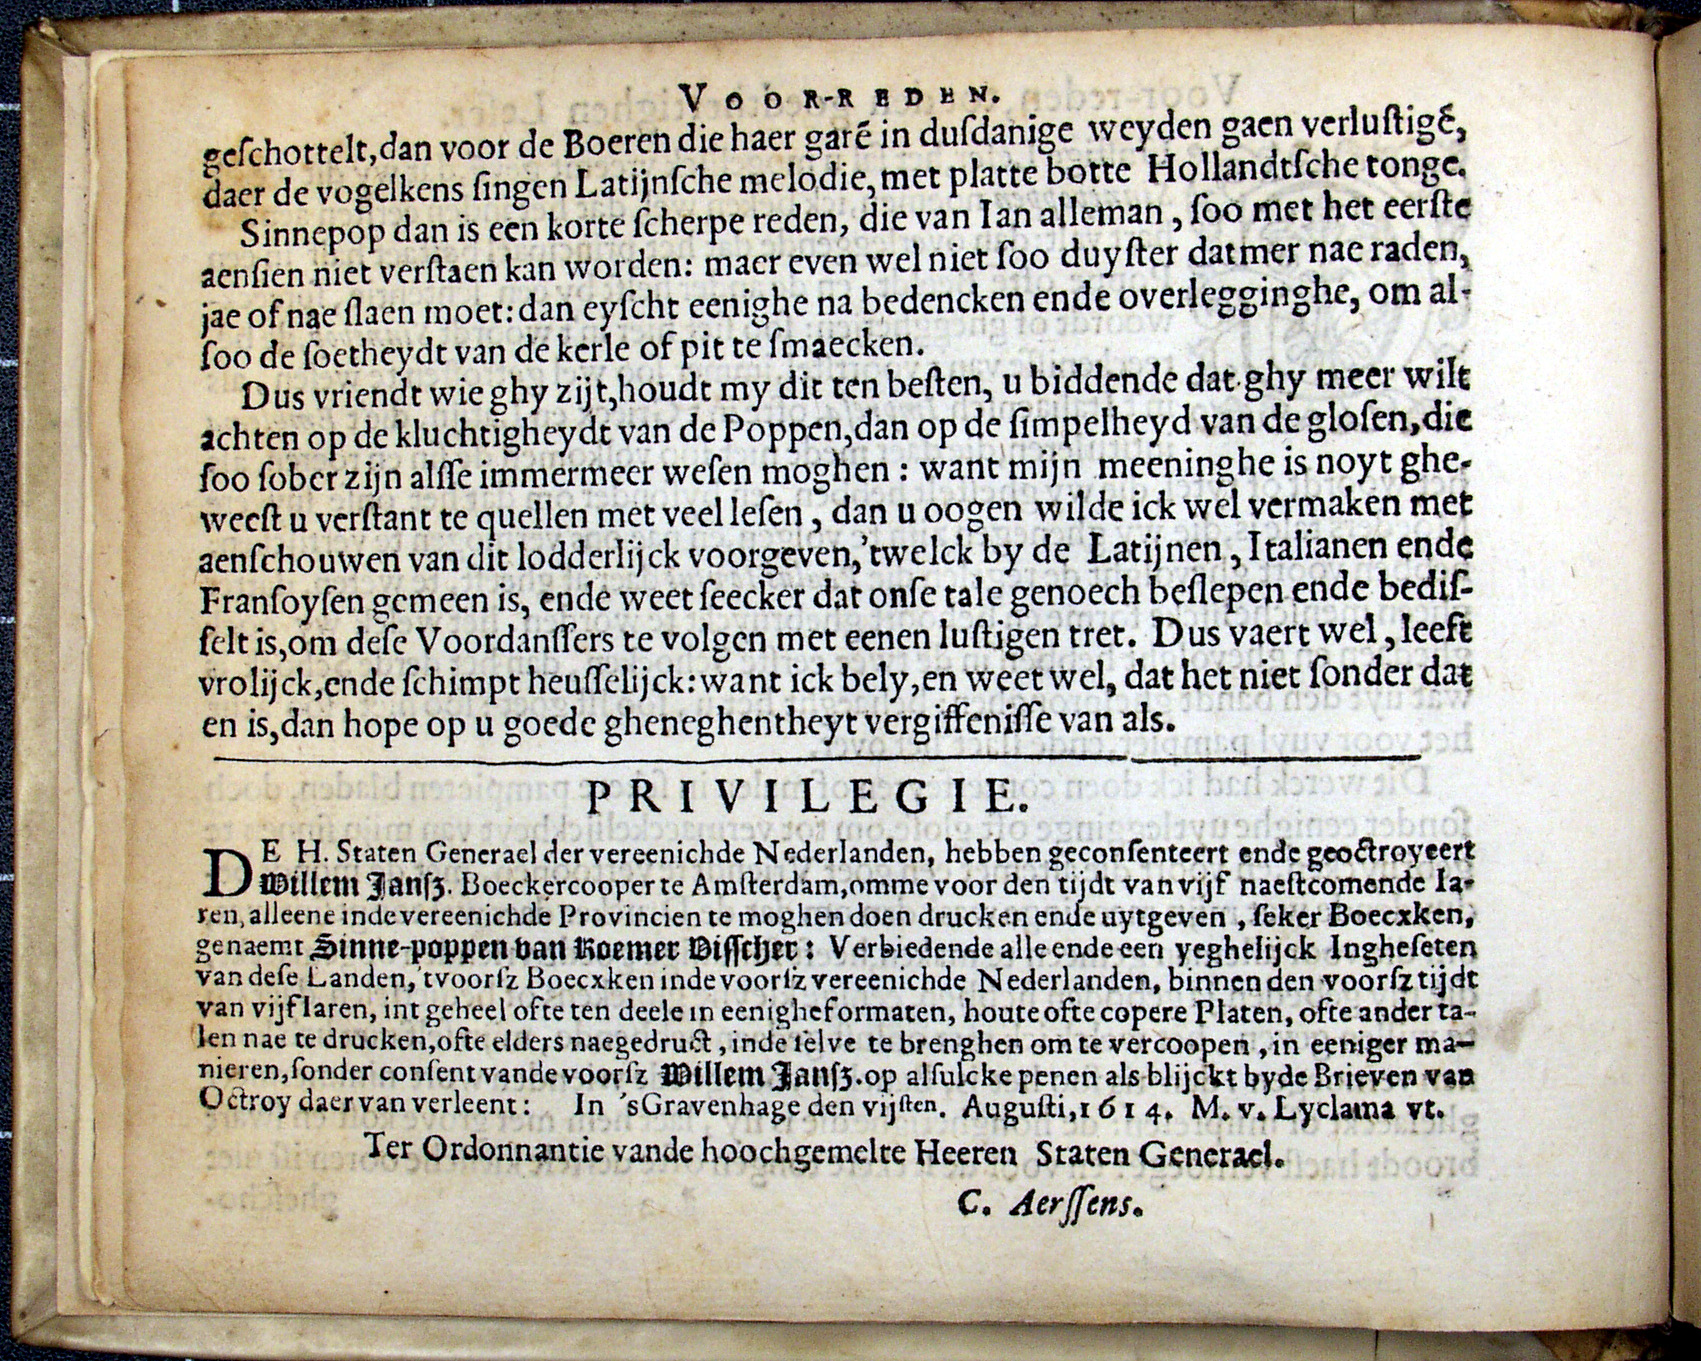 VOOR-REDEN.
geſchottelt, dan voor de Boeren die haer garē in duſdanige weyden gaen verluſtigē,
daer de vogelkens ſingen Latijnſche melodie, met platte botte Hollandtſche tonge.
Sinnepop dan is een korte ſcherpe reden, die van Ian alleman, ſoo met het eerſte
aenſien niet verſtaen kan worden: maer even wel niet ſoo duyſter datmer nae raden,
jae of nae ſlaen moet: dan eyſcht eenighe na bedencken ende overlegginghe, om al-
ſoo de ſoetheydt van de kerle of pit te ſmaecken.
Dus vriendt wie ghy zijt, houdt my dit ten beſten, u biddende dat ghy meer wilt
achten op de kluchtigheydt van de Poppen, dan op de ſimpelheyd van de gloſen, die
ſoo ſober zijn alſſe immermeer weſen moghen: want mijn meeninghe is noyt ghe-
weeſt u verſtant te quellen met veel leſen, dan u oogen wilde ick wel vermaken met
aenſchouwen van dit lodderlijck voorgeven, 'twelck by de Latijnen, Italianen ende
Franſoyſen gemeen is, ende weet ſeecker dat onſe tale genoech beſlepen ende bediſ-
ſelt is, om deſe Voordanſſers te volgen met eenen luſtigen tret. Dus vaert wel, leeft
vrolijck, ende ſchimpt heuſſelijck: want ick bely, en weet wel, dat het niet ſonder dat
en is, dan hope op u goede gheneghentheyt vergiffeniſſe van als.
PRIVILEGIE.
DE H. Staten Generael der vereenichde Nederlanden, hebben geconſenteert ende geoctroyeert
Willem Janſz. Boeckercooper te Amſterdam, omme voor den tijdt van vijf naeſtcomende Ia-
ren, alleene inde vereenichde Provincien te moghen doen drucken ende uytgeven, ſeker Boecxken,
genaemt Sinne-poppen van Roemer Viſſcher: Verbiedende alle ende een yeghelijck Ingheſeten
van deſe Landen, 'tvoorſz Boecxken inde voorſz vereenichde Nederlanden, binnen den voorſz tijdt
van vijf Iaren, int geheel ofte ten deele in eenighe formaten, houte ofte copere Platen, ofte ander ta-
len nae te drucken, ofte elders naegedruct, inde ſelve te brenghen om te vercoopen, in eeniger ma-
nieren, ſonder conſent vande voorſz Willem Janſz. op alſulcke penen als blijckt byde Brieven van
Octroy daer van verleent: In 'sGravenhage den vijſten. Auguſti, 1614. M. v. Lyclama vt.
Ter Ordonnantie vande hoochgemelte Heeren Staten Generael.
C. Aerſſens.